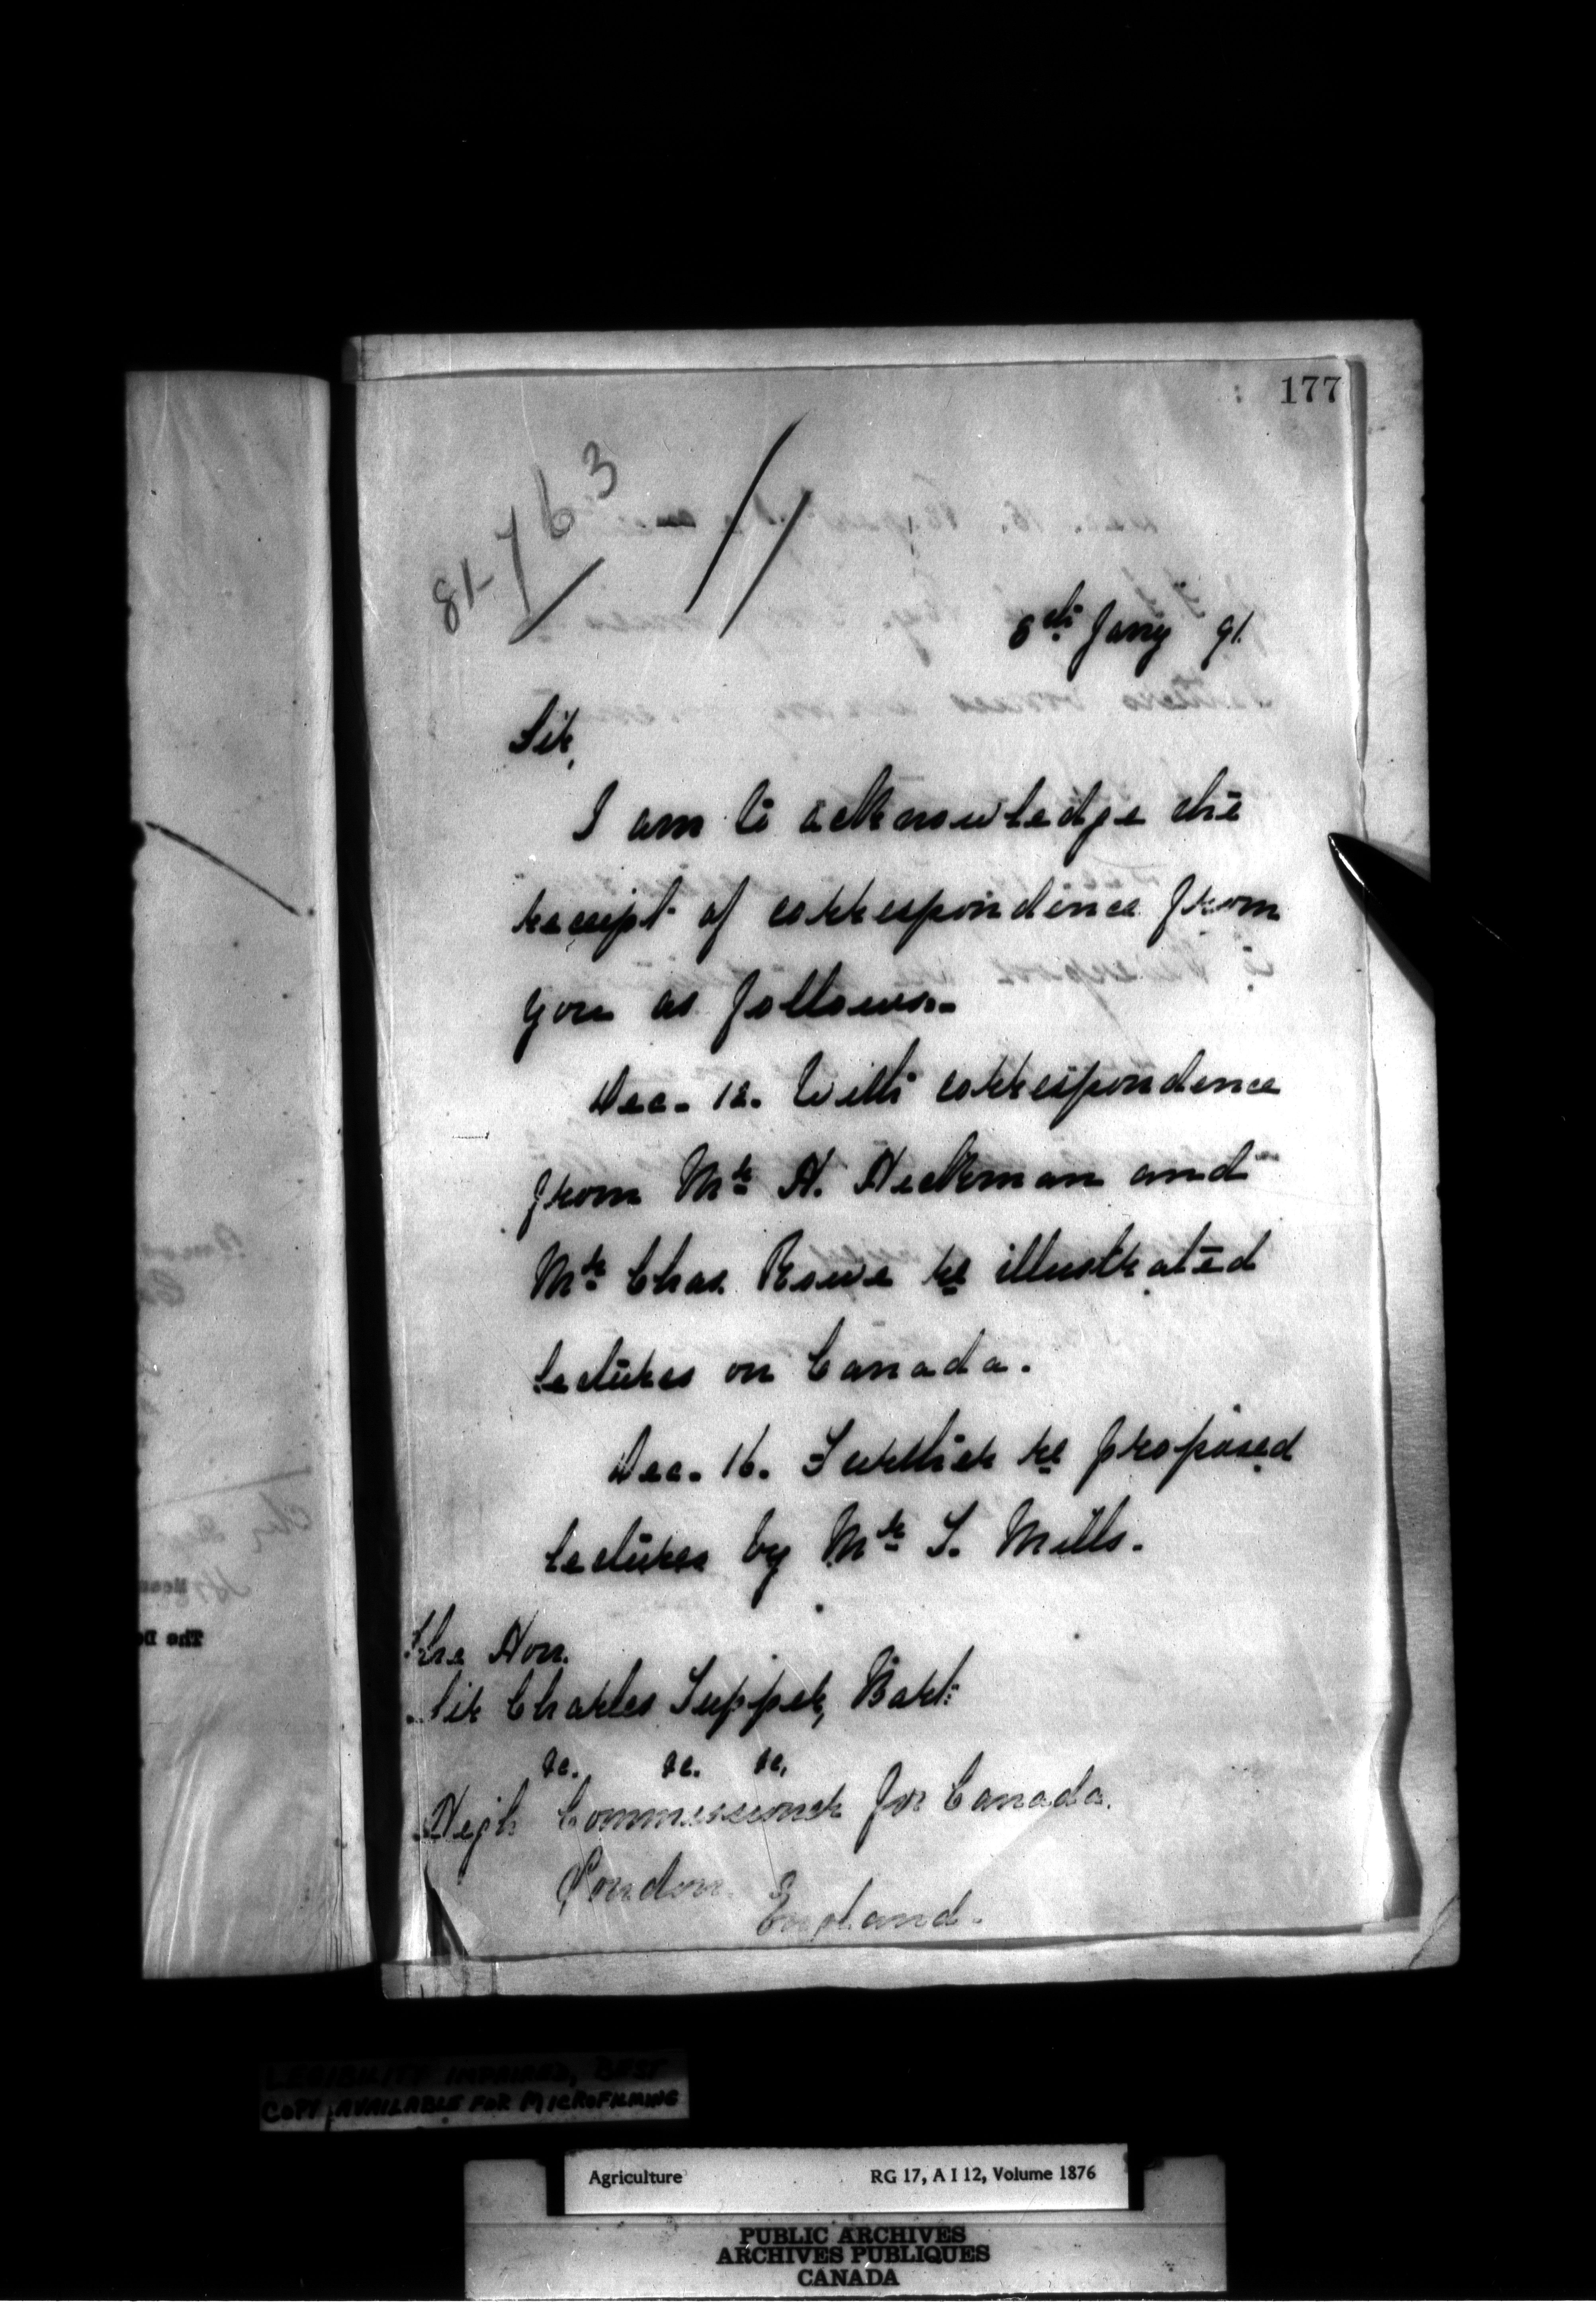 177
81-763
6th Jany 91.
Sir,
I am to acknowledge the
receipt of correspondence from
you as follows.-
Dec. 12. With correspondence
from Mr H. Heckman and
Mr Chas. Rowe re illustrated
lectures on Canada.
Dec. 16. Further re proposed
lectures by Mr S. Mills.
The Hon.
Sir Charles Tupper, Bart:
&c. &c. &c.
High Commissioner for Canada.
London.
England.
LEGIBILITY IMPAIRED, BEST
COPY AVAILABLE FOR MICROFILMING
Agriculture RG 17, A I 12, Volume 1876
PUBLIC ARCHIVES
ARCHIVES PUBLIQUES
CANADA